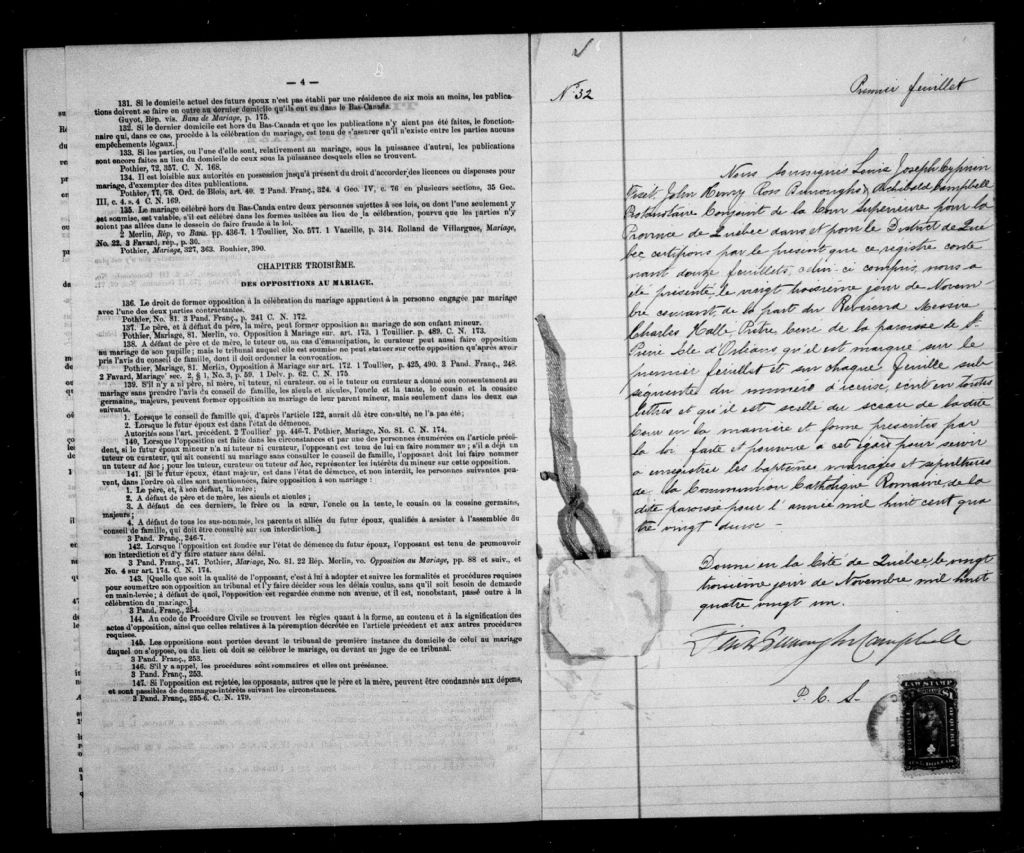 — 4 —
131. Si le domicile actuel des futurs époux n'est pas établi par une résidence de six mois au moins, les publica-
tions doivent se faire en outre au dernier domicile qu'ils ont eu dans le Bas-Canada.
Guyot, Rép. vis. Bans de Mariage, p. 175.
132. Si le dernier domicile est hors du Bas-Canada et que les publications n'y aient pas été faites, le fonction-
naire qui, dans ce cas, procède à la célébration du mariage, est tenu de s'assurer qu'il n'existe entre les parties aucuns
empêchements légaux.]
133. Si les parties, ou l'une d'elle sont, relativement au mariage, sous la puissance d'autrui, les publications
sont encore faites au lieu du domicile de ceux sous la puissance desquels elles se trouvent.
Pothier, 72, 357. C. N. 168.
134. Il est loisible aux autorités en possession jusqu'à présent du droit d'accorder des licences ou dispenses pour
mariage, d'exempter des dites publications.
Pothier, 77, 78. Ord. de Blois, art. 40. 2 Pand. Franç., 324. 4 Geo. IV, c. 76 en plusieurs sections, 35 Geo.
III, c. 4. s. 4 C. N. 169.
135. Le mariage célébré hors du Bas-Canda entre deux personnes sujettes à ses lois, ou dont l'une seulement y
est soumise, est valable, s'il est célébré dans les formes usitées au lieu de la célébration, pourvu que les parties n'y
soient pas allées dans le dessein de faire fraude à la loi.
2 Merlin, Rép, vo Bans. pp. 436-7. 1 Toullier, No. 577. 1 Vazeille, p. 314. Rolland de Villargues, Mariage,
No. 22. 3 Favard, rép., p. 30.
Pothier, Mariage, 327, 363. Bouhier, 390.
CHAPITRE TROISIÈME.
DES OPPOSITIONS AU MARIAGE.
136. Le droit de former opposition à la célébration du mariage appartient à la personne engagée par mariage
avec l'une des deux parties contractantes.
Pothier, No. 81. 3 Pand. Franç., p. 241 C. N. 172.
137. Le père, et à défaut du père, la mère, peut former opposition au mariage de son enfant mineur.
Pothier, Mariage, 81. Merlin, vo. Opposition à Mariage sur. art. 173. 1 Touillier. p. 489. C. N. 173.
138. A défaut de père et de mère, le tuteur ou, au cas d'émancipation, le curateur peut aussi faire opposition
au mariage de son pupille; mais le tribunal auquel elle est soumise ne peut statuer sur cette opposition qu'après avoir
pris l'avis du conseil de famille, dont il doit ordonner la convocation.
Pothier, Mariage, 81. Merlin, Opposition à Mariage sur art. 172. 1 Toullier, p. 425, 490. 3 Pand. Franç., 248.
2 Favard, Mariage' sec. 2, § 1, No. 3, p. 59. 1 Delv. p. 62. C. N. 175
139. S'il n'y a ni père, ni mère, ni tuteur, ni curateur, ou si le tuteur ou curateur a donné son consentement au
mariage sans prendre l'avis du conseil de famille, les aieuls et aieules, l'oncle et la tante, le cousin et la cousine
germains, majeurs, peuvent former opposition au mariage de leur parent mineur, mais seulement dans les deux cas
suivants.
1. Lorsque le conseil de famille qui, d'après l'article 122, aurait dû être consulté, ne l'a pas été;
2. Lorsque le futur époux est dans l'état de démence.
Autorités sous l'art. précédent. 2 Toullier' pp. 446-7. Pothier, Mariage, No. 81. C. N. 174.
140. Lorsque l'opposition est faite dans les circonstances et par une des personnes énumérées en l'article précé-
dent, si le futur époux mineur n'a ni tuteur ni curateur, l'opposant est tenu de lui en faire nommer un; s'il a déjà un
tuteur ou curateur, qui ait consenti au mariage sans consulter le conseil de famille, l'opposant doit lui faire nommer
un tuteur ad hoc; pour les tuteur, curateur ou tuteur ad hoc, représenter les intérêts du mineur sur cette opposition.
141. [Si le futur époux, étant majeur, est dans l'état de démence, et non interdit, les personnes suivantes peu-
vent, dans l'ordre où elles sont mentionnées, faire opposition à son mariage:
1. Le père, et, à son défaut, la mère;
2. A défaut de père et de mère, les aieuls et aieules;
3. A défaut de ces derniers, le frère ou la sœur, l'oncle ou la tente, le cousin ou la cousine germains,
majeurs;
4. A défaut de tous les sus-nommés, les parents et alliés du futur époux, qualifiés à assister à l'assemblée du
conseil de famille, qui doit être consulté sur son interdiction.]
3 Pand. Franç., 246-7.
142. Lorsque l'opposition est fondée sur l'état de démence du futur époux, l'opposant est tenu de promouvoir
son interdiction et d'y faire statuer sans délai.
3 Pand. Franç., 247. Pothier, Mariage, No. 81. 22 Rép. Merlin, vo. Opposition au Mariage, pp. 88 et suiv., et
No. 4 sur art. 174. C. N. 174.
143. [Quelle que soit la qualité de l'opposant, c'est à lui à adopter et suivre les formalités et procédures requises
pour soumettre son opposition au tribunal et l'y faire décider sous les délais voulus, sans qu'il soit besoin de demande
en main-levée; à défaut de quoi, l'opposition est regardée comme non avenue, et il est, nonobstant, passé outre à la
célébration du mariage.]
3 Pand. Franç., 254.
144. Au code de Procédure Civile se trouvent les règles quant à la forme, au contenu et à la signification des
actes d'opposition, ainsi que celles relatives à la péremption décrétée en l'article précédent et aux autres procédures
requises.
145. Les oppositions sont portées devant le tribunal de première instance du domicile de celui au mariage
duquel on s'oppose, ou du lieu où doit se célébrer le mariage, ou devant un juge de ce tribunal.
3 Pand. Franç., 253.
146. S'il y a appel, les procédures sont sommaires et elles ont préséance.
3 Pand. Franç., 253.
147. Si l'opposition est rejetée, les opposants, autres que le père et la mère, peuvent être condamnés aux dépens,
et sont passibles de dommages-intérêts suivant les circonstances.
3 Pand. Franç., 255-6. C. N. 179.
No 32
Premier feuillet
Nous soussignés Louis Joseph Cyprien
Fiset, John Henry Ross Burroughs & Archibald Campbell
Protonotaire Conjoint de la Cour Superieure pour la
Province de Québec dans et pour le District de Qué
bec certifions par le present que ce registre conte
nant douze feuillets, celui-ci compris, nous a
été présenté le vingt troisieme jour de Novem
bre courant de la part du Reverend Messire
Charles Halle Prêtre Curé de la paroisse de St
Pierre Isle d'Orléans qu'il est marqué sur le
premier feuillet et sur chaque feuille sub
séquentes du numéro d'icelui, écrit en toutes
lettres et qu'il est scellé du sceau de la dite
Cour en la manière et forme présentes par
la loi faite et pourvue a cet égard pour servir
a enregistrer les baptêmes mariages et sépultures
de la Communion Catholique Romaine de la
dite paroisse pour l'année mil huit cent qua
tre vingt deux —
Donné en la Cité de Québec le vingt
troisieme jour de Novembre mil huit
quatre vingt un.
Fiset Burroughs Campbell
P. C. S.
LAW STAMP
$1
QUEBEC
ONE DOLLAR